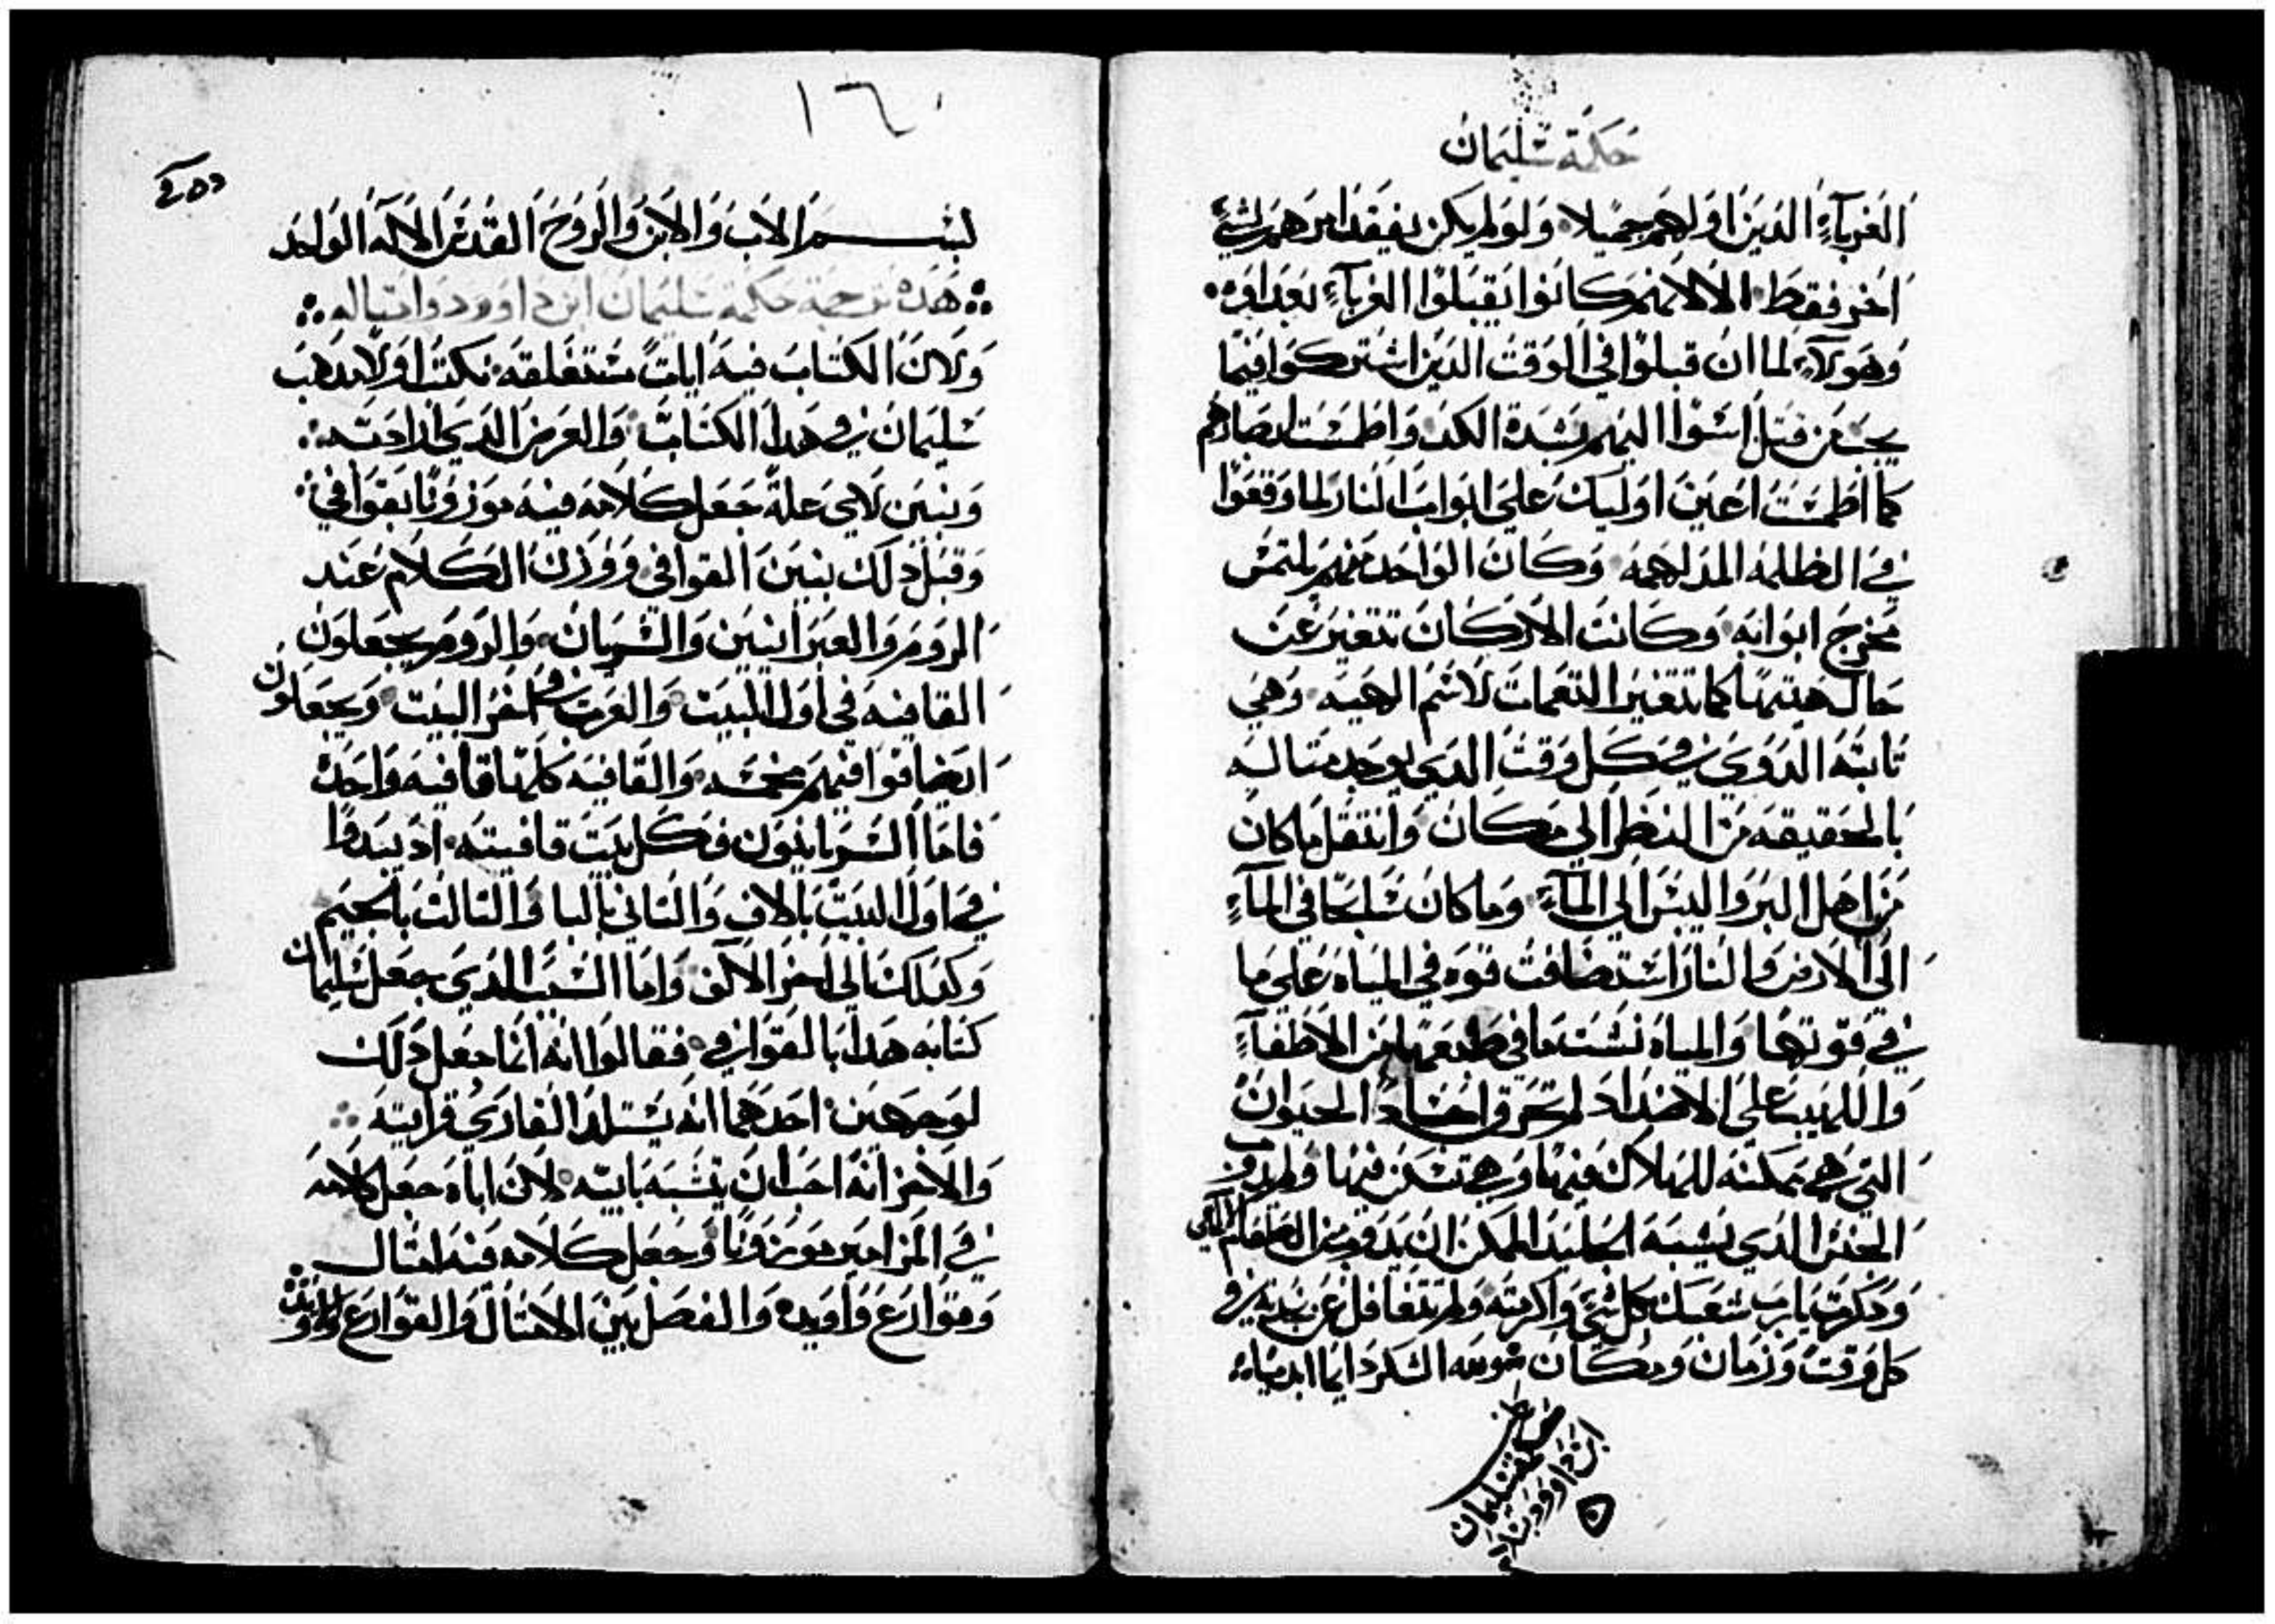 حكمة سليمان
الغرباء الدين اولهم جميلا ولو لم يكن يفيقد امرهم لشيء
اخر فقط الا لانهم كانوا يقبلوا الغرباء بعداوه
وهولاء لما ان قبلوا في الوقت الدين اشتركوا فيما
من قبل اسوا اليهم بشدة الكد واطمست ابصارهم
كما اطمست اعين اوليك على ابواب النار لما وقعوا
في الظلمه المدلهمه وكان الواحد منهم يلتمس
مخرج ابوابه وكانت الاركان تتغير عن
حال هيتها كما تتغير النغمات لاسم الهيه وهي
تابته الدوي في كل وقت الدي يوجد متاله
بالحقيقه من النظر الى مكان وانتقل ما كان
من اهل البر واليبس الى الماء وما كان سابحا في الماء
الى الارض والنار استضافت قوه في المياه على ما
في قوتها والمياه نسيت ما في طبعها من الاطفاء
واللهيب على الاضداد لم تحرق اجساد الحيوان
التي هي ممكنه للهلاك فيها وهي تسكن فيها ولم يدوب
الجنس الدي يشبه الجليد الممكن ان يدوب من الطعام
ودكرت يارب شعبك بكل شيء واكرمته ولم تتغافل عن في
كل وقت وزمان ومكان الشكر دايما ابديا
سليمان
ابن داوود
١٦
بسم الاب والابن والروح القدس الاله الواحد
هده ترجمة حكمة سليمان ابن داوود وامتاله
ولان الكتاب فيه ايات مستغلقه نكتب اولا مدهب
سليمان في هدا الكتاب والعرض الدي اراد به
ونبين لاي علة جعل كلامه فيه موزونا بقوافي
وقبل دلك نبين القوافي ووزن الكلام عند
الروم والعبرانيين والسريان والروم يجعلون
القافيه في اول البيت والعرب في اخر البيت ويجعلون
ايضا قوافيهم مخمسه والقافيه كلها قافيه واحده
فاما السريانيون فكل بيت قافيته اد يبدوا
في اول البيت بالاف والتاني بالبا والتالت بالجيم
وكدلك الى اخر الالف واما السبب الدي جعل سليمان
كتابه هدا بالقوافي فقالوا انه انما جعل دلك
لوجهين احدهما انه يستلد القاري قرايته
والاخر انه احب ان يتشبه بابيه لان اباه جعل كلامه
في المزامير موزونا وجعل كلامه فيه امتال
وقوارع واوبده والفصل بين الامتال والقوارع